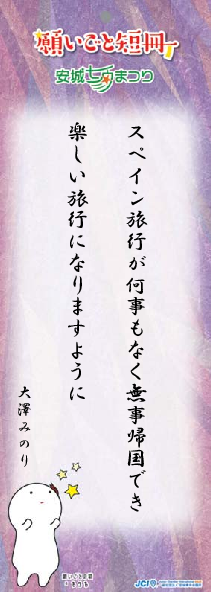 願いごと短冊
安城七夕まつり
スペイン旅行が何事もなく無事帰国でき
楽しい旅行になりますように
大澤みのり
JCI